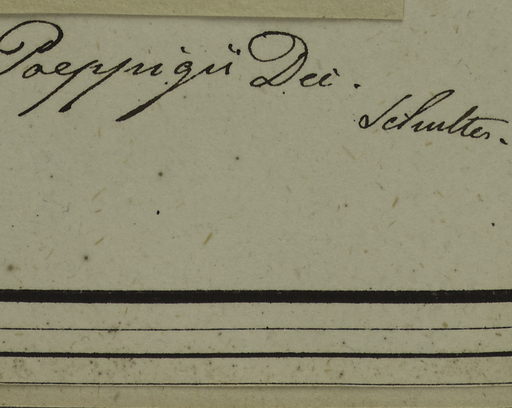 Poeppigii Dec.
Schultes.